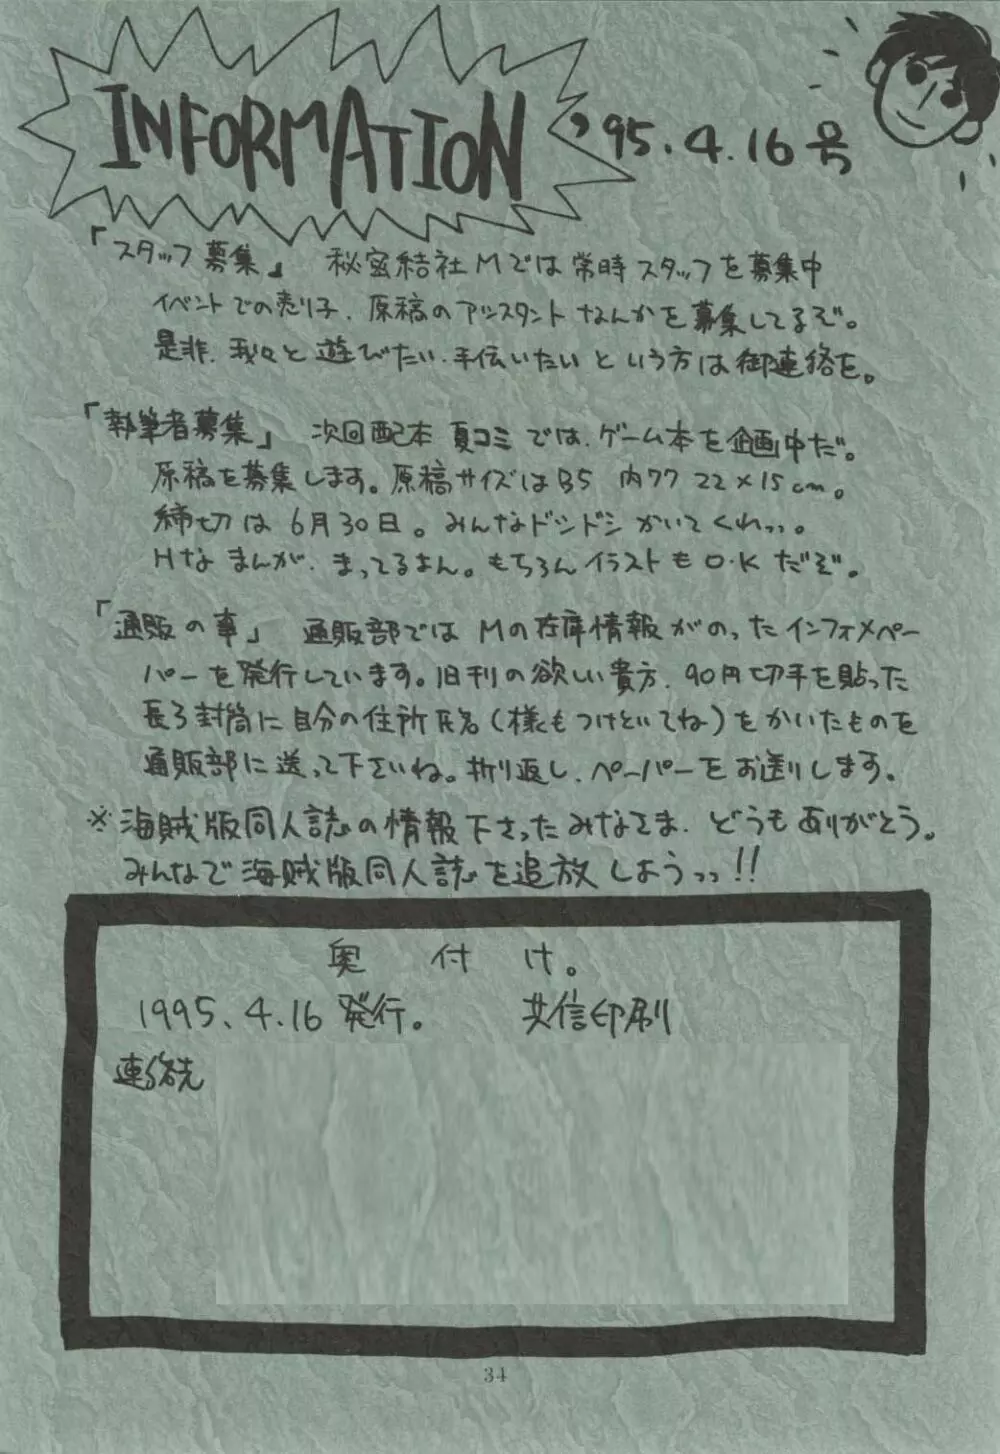 INFORMATION
'95.4.16号
「スタッフ募集」 秘密結社Mでは常時スタッフを募集中
イベントでの売り子、原稿のアシスタントなんかを募集してるぞ。
是非、我々と遊びたい、手伝いたいという方は御連絡を。
「執筆者募集」 次回配本 夏コミでは、ゲーム本を企画中だ。
原稿を募集します。原稿サイズはB5 内ワク 22×15cm。
締切は6月30日。みんなドシドシかいてくれっっ。
Hなまんが、まってるよん。もちろんイラストもO.Kだぞ。
「通販の事」 通販部ではMの在庫情報がのったインフォメペー
パーを発行しています。旧刊の欲しい貴方、90円切手を貼った
長3封筒に自分の住所氏名(様もつけといてね)をかいたものを
通販部に送って下さいね。折り返し、ペーパーをお送りします。
※海賊版同人誌の情報下さったみなさま、どうもありがとう。
みんなで海賊版同人誌を追放しようっっ!!
奥付け。
1995.4.16発行。 共信印刷
連絡先
34